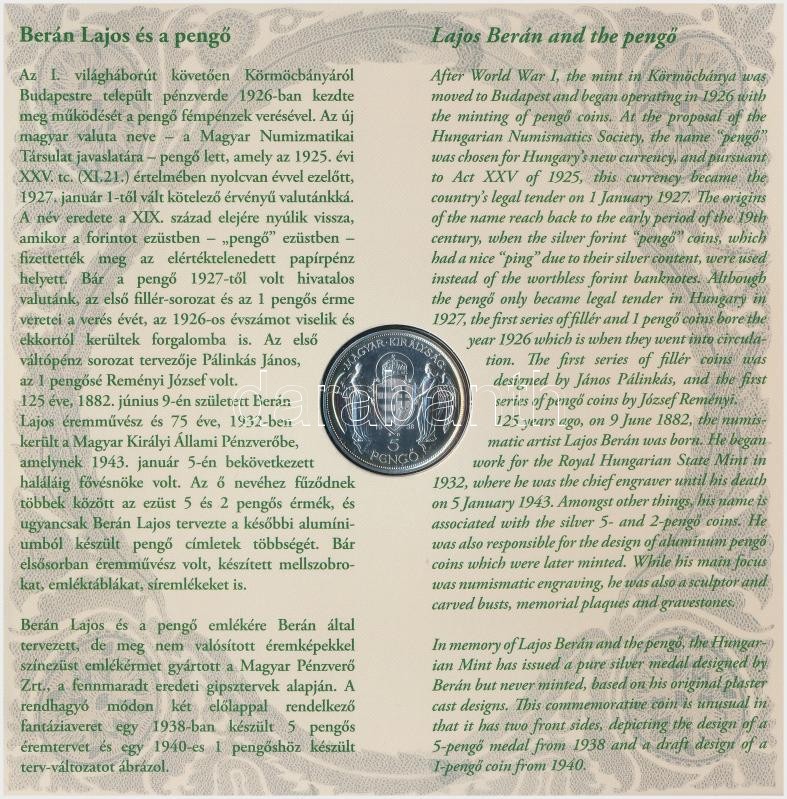 Berán Lajos és a pengő
Az I. világháborút követően Körmöcbányáról
Budapestre települt pénzverde 1926-ban kezdte
meg működését a pengő fémpénzek verésével. Az új
magyar valuta neve – a Magyar Numizmatikai
Társulat javaslatára – pengő lett, amely az 1925. évi
XXV. tc. (XI.21.) értelmében nyolcvan évvel ezelőtt,
1927. január 1-től vált kötelező érvényű valutánkká.
A név eredete a XIX. század elejére nyúlik vissza,
amikor a forintot ezüstben – „pengő” ezüstben –
fizettették meg az elértéktelenedett papírpénz
helyett. Bár a pengő 1927-től volt hivatalos
valutánk, az első fillér-sorozat és az 1 pengős érme
veretei a verés évét, az 1926-os évszámot viselik és
ekkortól kerültek forgalomba is. Az első
váltópénz sorozat tervezője Pálinkás János,
az 1 pengősé Reményi József volt.
125 éve, 1882. június 9-én született Berán
Lajos éremművész és 75 éve, 1932-ben
került a Magyar Királyi Állami Pénzverőbe,
amelynek 1943. január 5-én bekövetkezett
haláláig fővésnöke volt. Az ő nevéhez fűződnek
többek között az ezüst 5 és 2 pengős érmék, és
ugyancsak Berán Lajos tervezte a későbbi alumíni-
umból készült pengő címletek többségét. Bár
elsősorban éremművész volt, készített mellszobro-
kat, emléktáblákat, síremlékeket is.
Berán Lajos és a pengő emlékére Berán által
tervezett, de meg nem valósított éremképekkel
színezüst emlékérmet gyártott a Magyar Pénzverő
Zrt., a fennmaradt eredeti gipsztervek alapján. A
rendhagyó módon két előlappal rendelkező
fantáziaveret egy 1938-ban készült 5 pengős
éremtervet és egy 1940-es 1 pengőshöz készült
terv-változatot ábrázol.
MAGYAR KIRÁLYSÁG
5
PENGŐ
darabanth
Lajos Berán and the pengő
After World War I, the mint in Körmöcbánya was
moved to Budapest and began operating in 1926 with
the minting of pengő coins. At the proposal of the
Hungarian Numismatics Society, the name “pengő”
was chosen for Hungary's new currency, and pursuant
to Act XXV of 1925, this currency became the
country's legal tender on 1 January 1927. The origins
of the name reach back to the early period of the 19th
century, when the silver forint “pengő” coins, which
had a nice “ping” due to their silver content, were used
instead of the worthless forint banknotes. Although
the pengő only became legal tender in Hungary in
1927, the first series of fillér and 1 pengő coins bore the
year 1926 which is when they went into circula-
tion. The first series of fillér coins was
designed by János Pálinkás, and the first
series of pengő coins by József Reményi.
125 years ago, on 9 June 1882, the numis-
matic artist Lajos Berán was born. He began
work for the Royal Hungarian State Mint in
1932, where he was the chief engraver until his death
on 5 January 1943. Amongst other things, his name is
associated with the silver 5- and 2-pengő coins. He
was also responsible for the design of aluminum pengő
coins which were later minted. While his main focus
was numismatic engraving, he was also a sculptor and
carved busts, memorial plaques and gravestones.
In memory of Lajos Berán and the pengő, the Hungar-
ian Mint has issued a pure silver medal designed by
Berán but never minted, based on his original plaster
cast designs. This commemorative coin is unusual in
that it has two front sides, depicting the design of a
5-pengő medal from 1938 and a draft design of a
1-pengő coin from 1940.